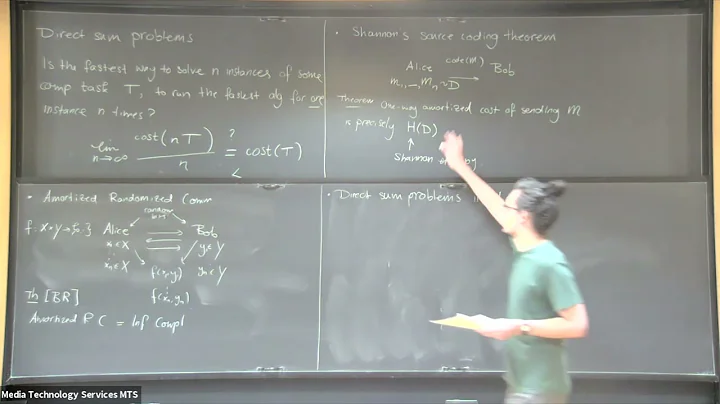 Direct sum problems
Is the fastest way to solve n instances of some
comp task T, to run the fastest alg for one
instance n times?
lim n→∞ cost(nT) / n ?= cost(T)
<
• Shannon's source coding theorem
Alice code(M) → Bob
m₁,...,Mₙ ~ D
Theorem One-way amortized cost of sending M
is precisely H(D)
↑
Shannon
• Amortized Randomized Comm
random
f: X×Y→ Alice Bob
x₁∈X y₁∈Y
⋮
xₙ∈X f(x₁,y₁) yₙ∈Y
⋮
f(xₙ,yₙ)
Th [BR]
Amortized RC = Inf Compl
• Direct sum problems
Media Technology Services MTS